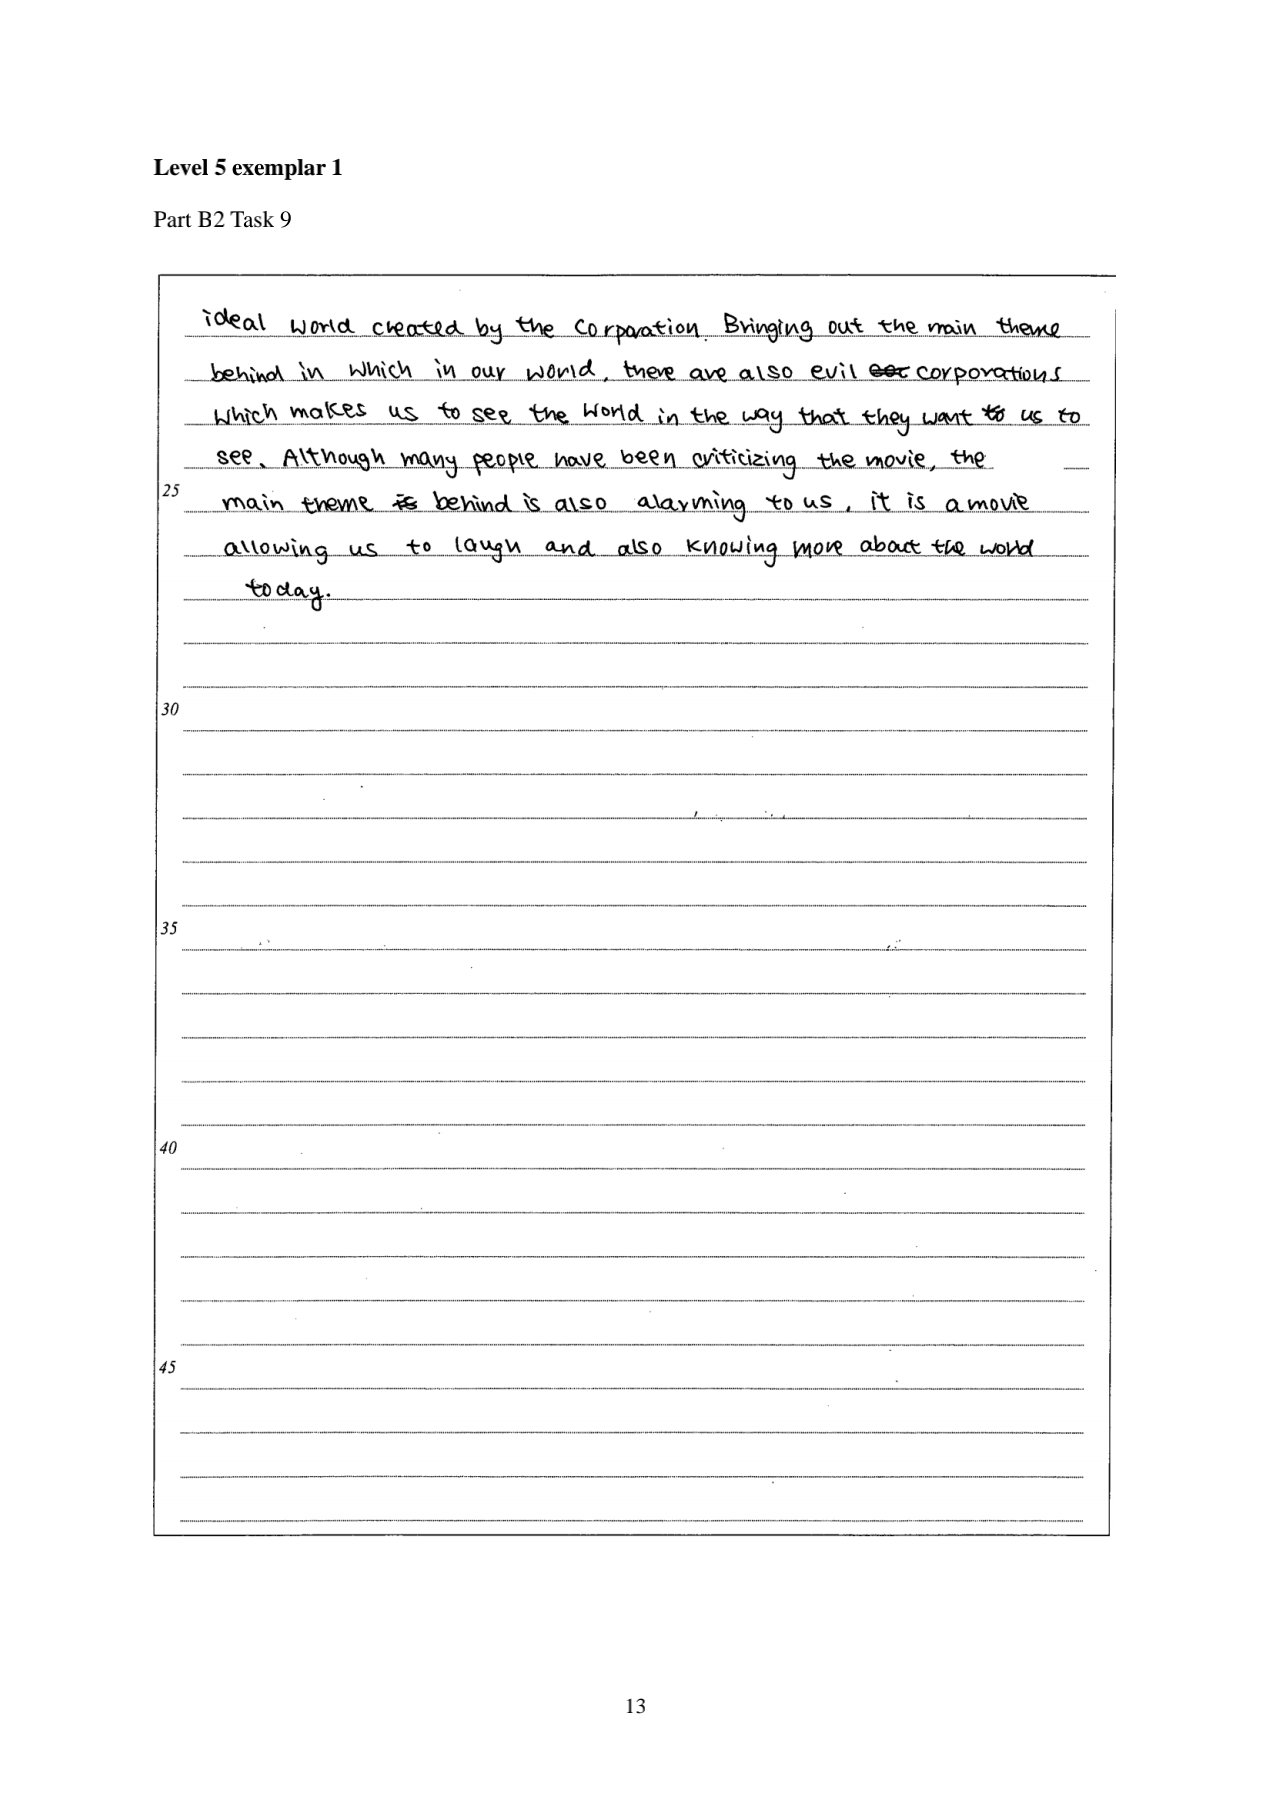 Level 5 exemplar 1
Part B2 Task 9
ideal world created by the Corporation. Bringing out the main theme
behind in which in our world, there are also evil corporations
which makes us to see the world in the way that they want us to
see. Although many people have been criticizing the movie, the
25
main theme behind is also alarming to us, it is a movie
allowing us to laugh and also knowing more about the world
today.
30
35
40
45
13